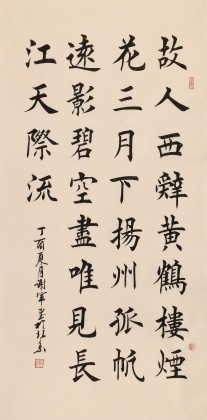 故人西辭黃鶴樓煙
花三月下揚州孤帆
遠影碧空盡唯見長
江天際流
丁酉夏月謝軍書於北京